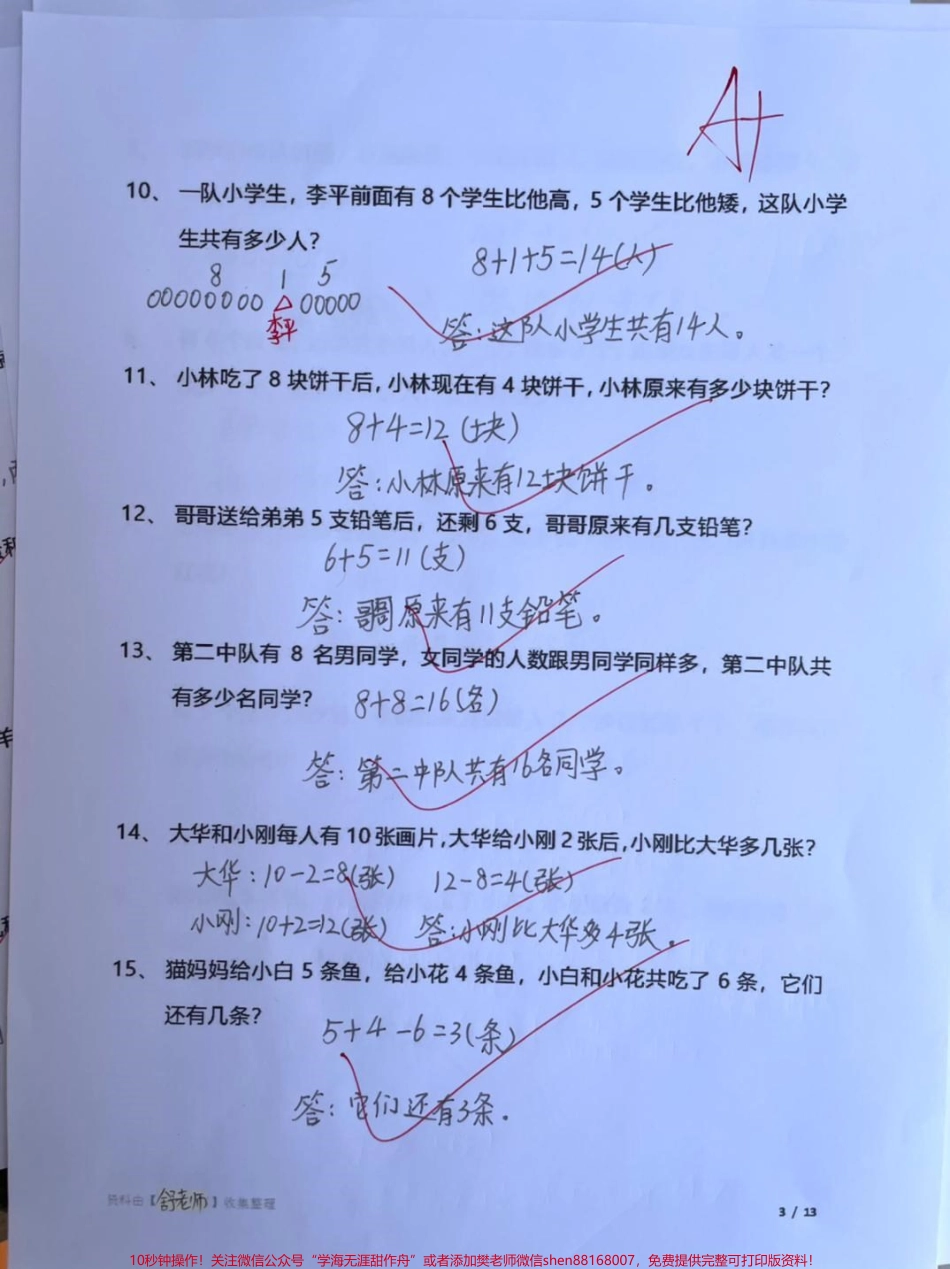 A+
10、 一队小学生，李平前面有 8 个学生比他高，5 个学生比他矮，这队小学
生共有多少人？
8+1+5=14(人)
8 1 5
00000000 △ 00000
李平
答：这队小学生共有14人。
11、 小林吃了 8 块饼干后，小林现在有 4 块饼干，小林原来有多少块饼干？
8+4=12 (块)
答：小林原来有12块饼干。
12、 哥哥送给弟弟 5 支铅笔后，还剩 6 支，哥哥原来有几支铅笔？
6+5=11 (支)
答：哥哥原来有11支铅笔。
13、 第二中队有 8 名男同学，女同学的人数跟男同学同样多，第二中队共
有多少名同学？ 8+8=16(名)
答：第二中队共有16名同学。
14、 大华和小刚每人有 10 张画片，大华给小刚 2 张后，小刚比大华多几张？
大华：10-2=8(张) 12-8=4(张)
小刚：10+2=12(张) 答：小刚比大华多4张。
15、 猫妈妈给小白 5 条鱼，给小花 4 条鱼，小白和小花共吃了 6 条，它们
还有几条？
5+4-6=3(条)
答：它们还有3条。
资料由【舒老师】收集整理
3 / 13
10秒钟操作！关注微信公众号“学海无涯甜作舟”或者添加樊老师微信shen88168007，免费提供完整可打印版资料！